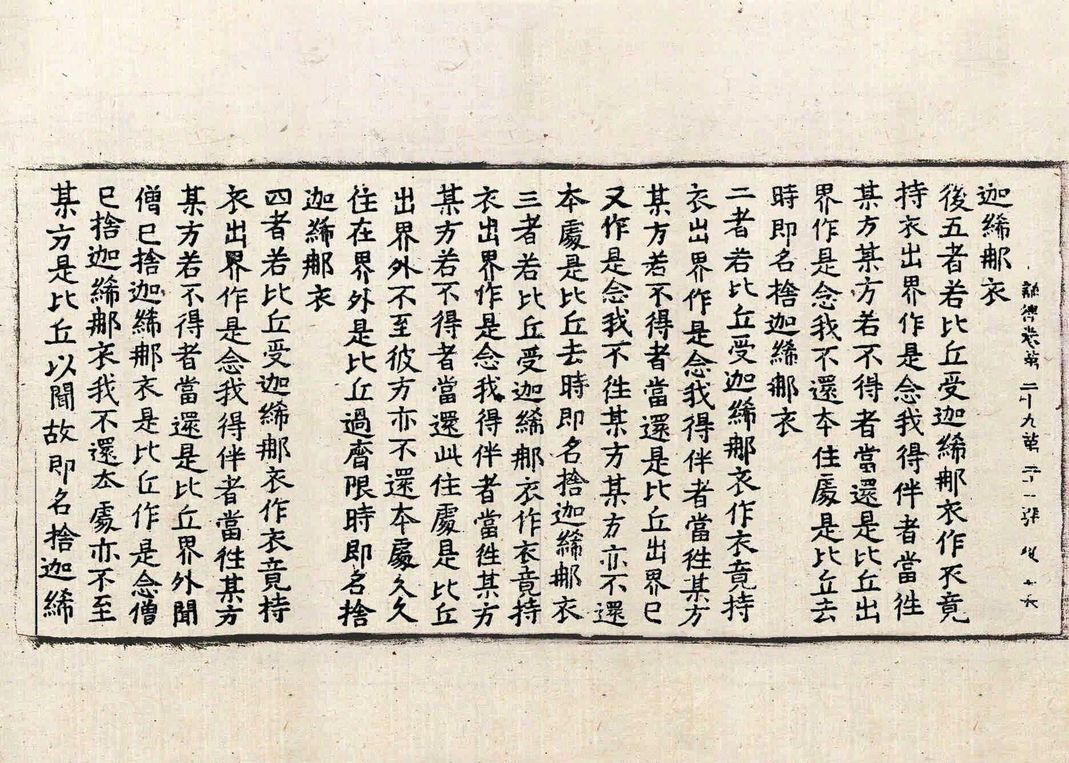 迦絺那衣
誦律卷第二十九第二十一張
後五者若比丘受迦絺那衣作衣竟
持衣出界作是念我得伴者當往
某方某方若不得者當還是比丘出
界作是念我不還本住處是比丘去
時即名捨迦絺那衣
二者若比丘受迦絺那衣作衣竟持
衣出界作是念我得伴者當徃某方
某方若不得者當還是比丘出界已
又作是念我不徃某方某方亦不還
本處是比丘去時即名捨迦絺那衣
三者若比丘受迦絺那衣作衣竟持
衣出界作是念我得伴者當徃某方
某方若不得者當還此住處是比丘
出界外不至彼方亦不還本處久久
住在界外是比丘過齊限時即名捨
迦絺那衣
四者若比丘受迦絺那衣作衣竟持
衣出界作是念我得伴者當徃某方
某方若不得者當還是比丘界外聞
僧已捨迦絺那衣是比丘作是念僧
已捨迦絺那衣我不還本處亦不至
某方是比丘以聞故即名捨迦絺